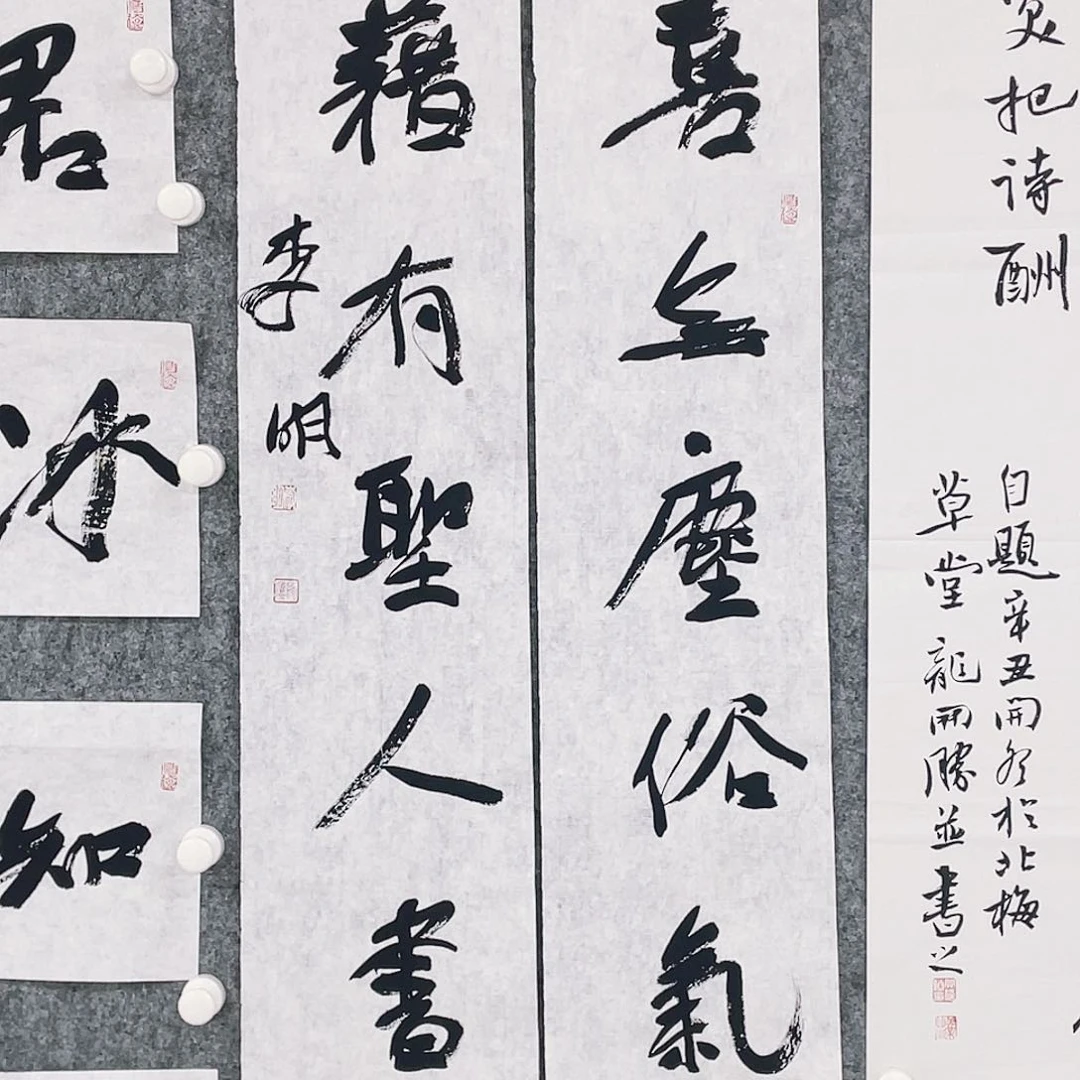 把诗酬
自题辛丑開冬於北梅
草堂龍開勝並書之
喜無塵俗氣
藉有聖人書
李明
君
冰
知